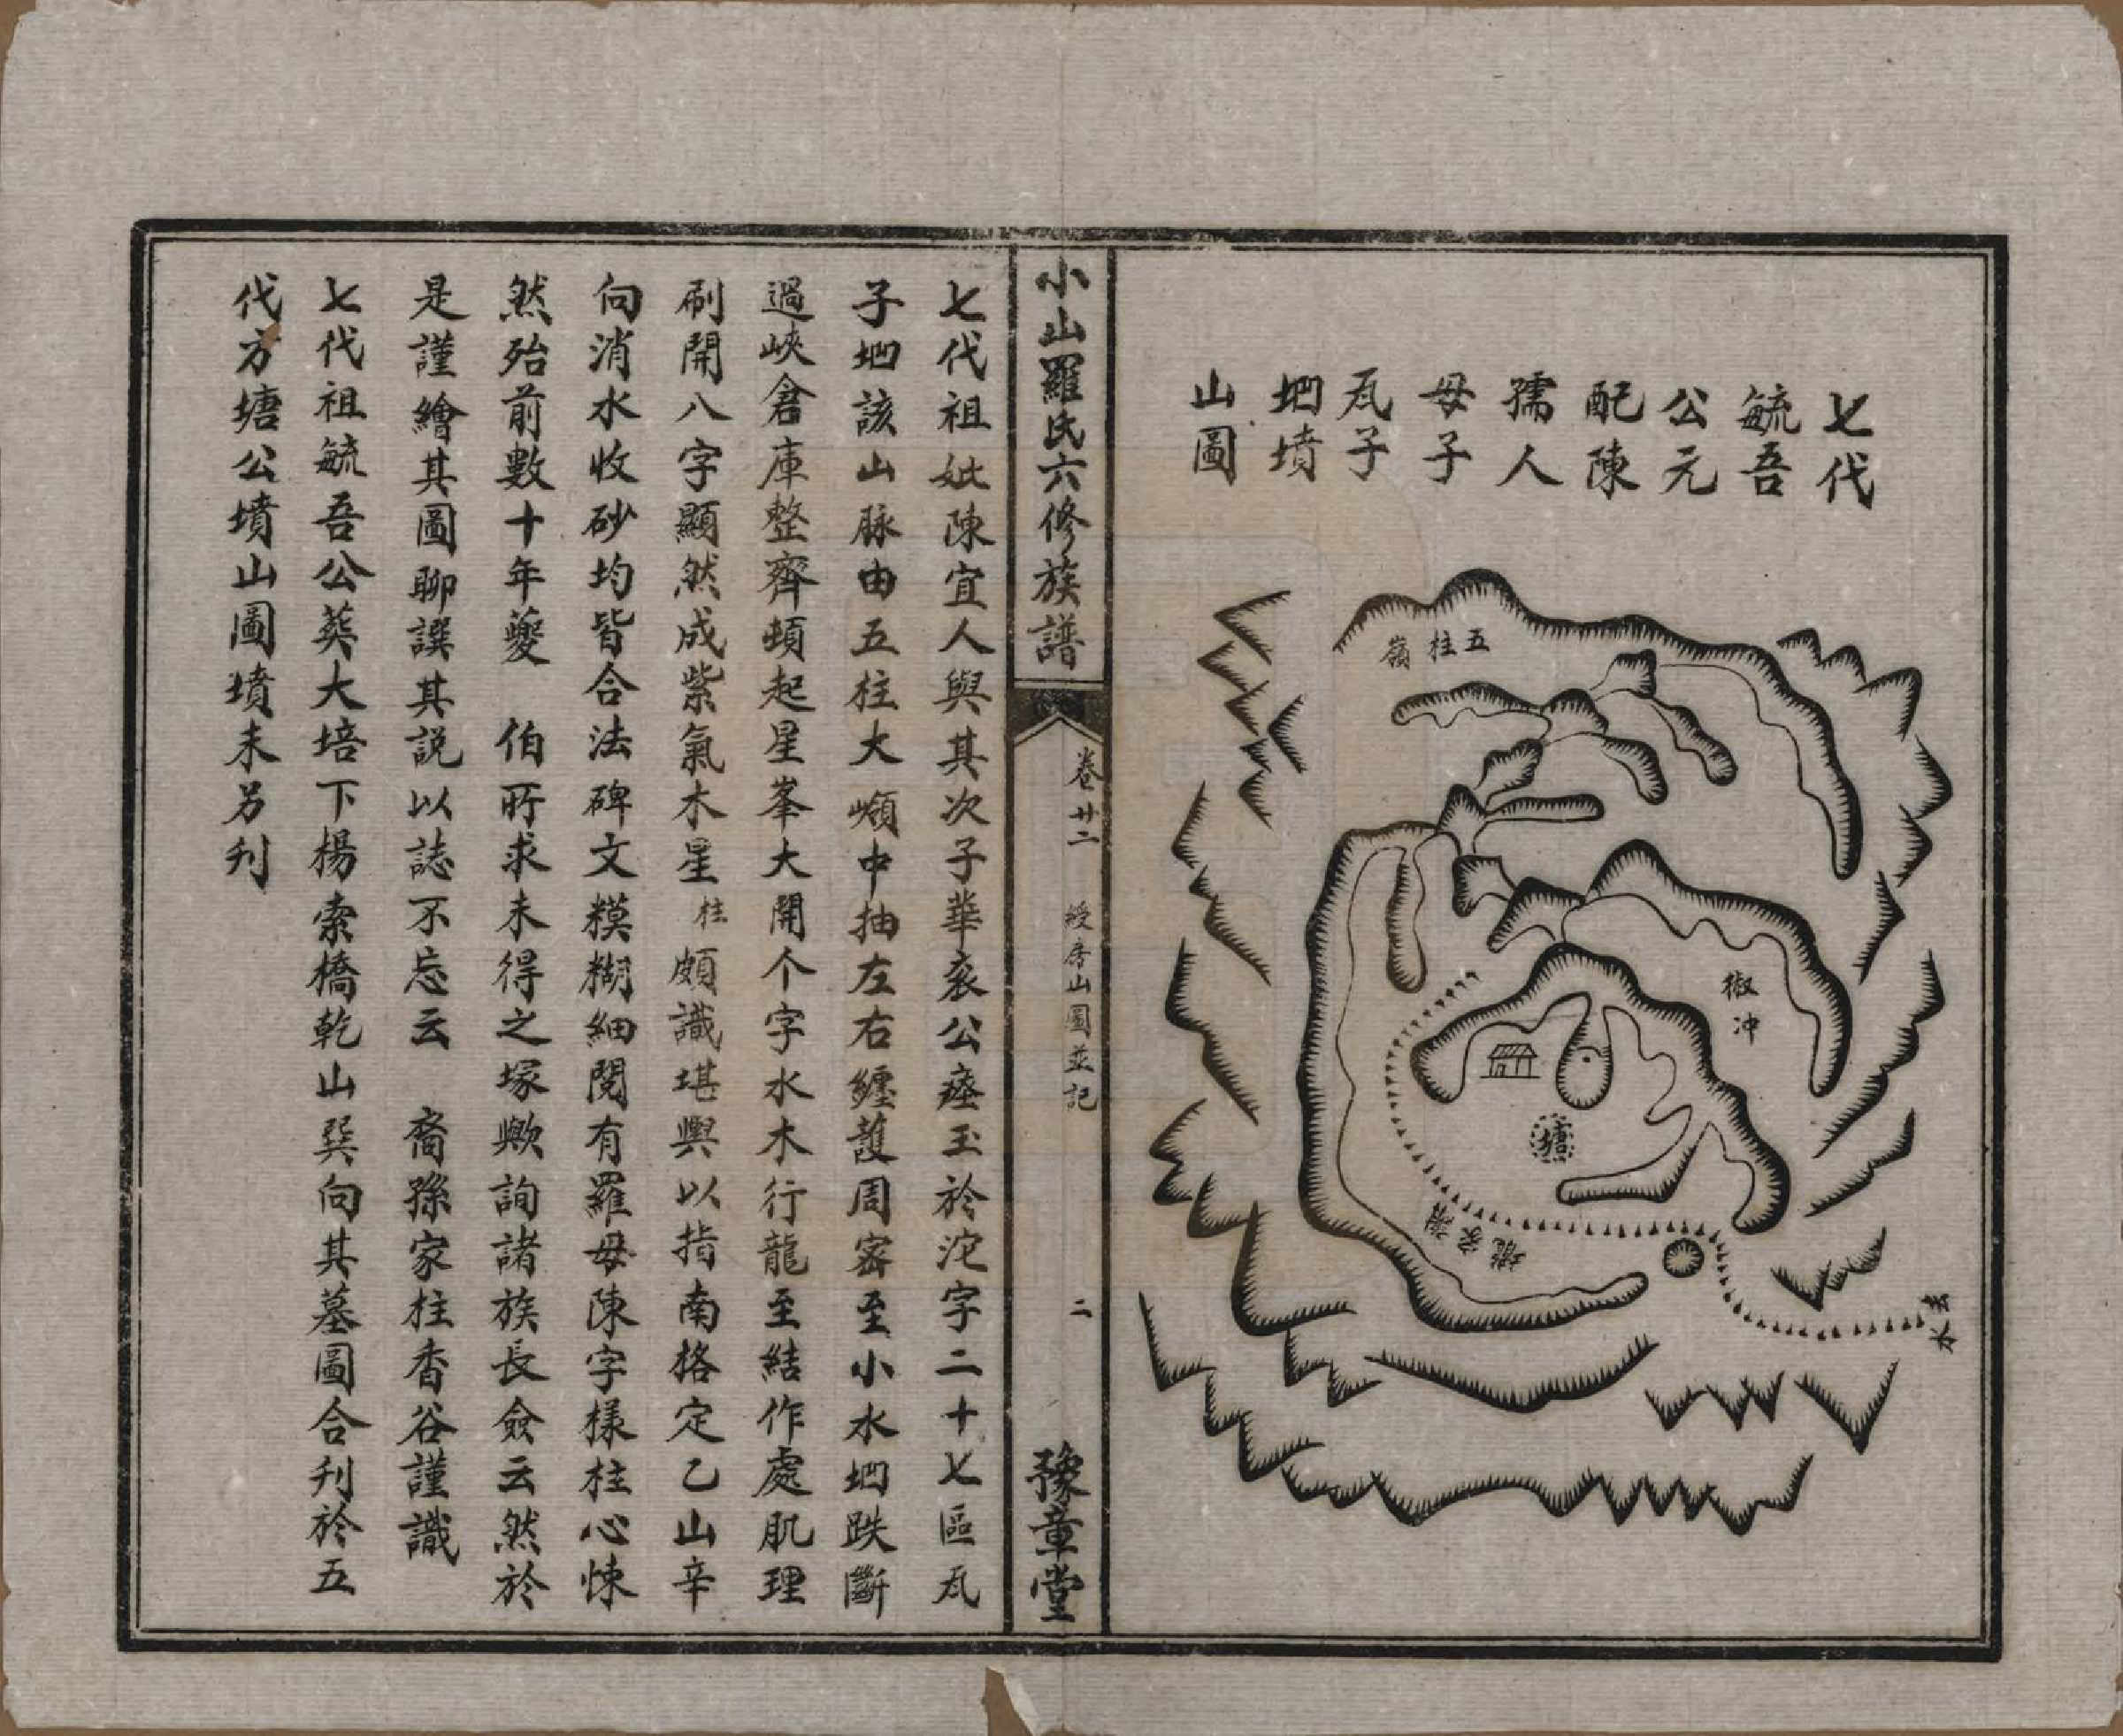 七代
毓吾
公元
配陳
孺人
母子
瓦子
坳墳
山圖
五柱嶺
椒冲
塘
謝家
去水
小山羅氏六修族譜
卷廿二
綬房山圖並記
二
豫章堂
七代祖妣陳宜人與其次子華衮公瘞玉於沱字二十七區瓦
子坳該山脉由五柱大嶺中抽左右纏護周密至小水坳跌斷
過峽倉庫整齊頓起星峯大開个字水木行龍至結作處肌理
刷開八字顯然成紫氣木星柱頗識堪輿以指南格定乙山辛
向消水收砂均皆合法碑文糢糊細閱有羅母陳字樣柱心悚
然殆前數十年夔　伯所求未得之塚歟詢諸族長僉云然於
是謹繪其圖聊譔其説以誌不忘云　裔孫家柱香谷謹識
七代祖毓吾公葬大培下楊索橋乾山巽向其墓圖合刋於五
代方塘公墳山圖墳未另刋